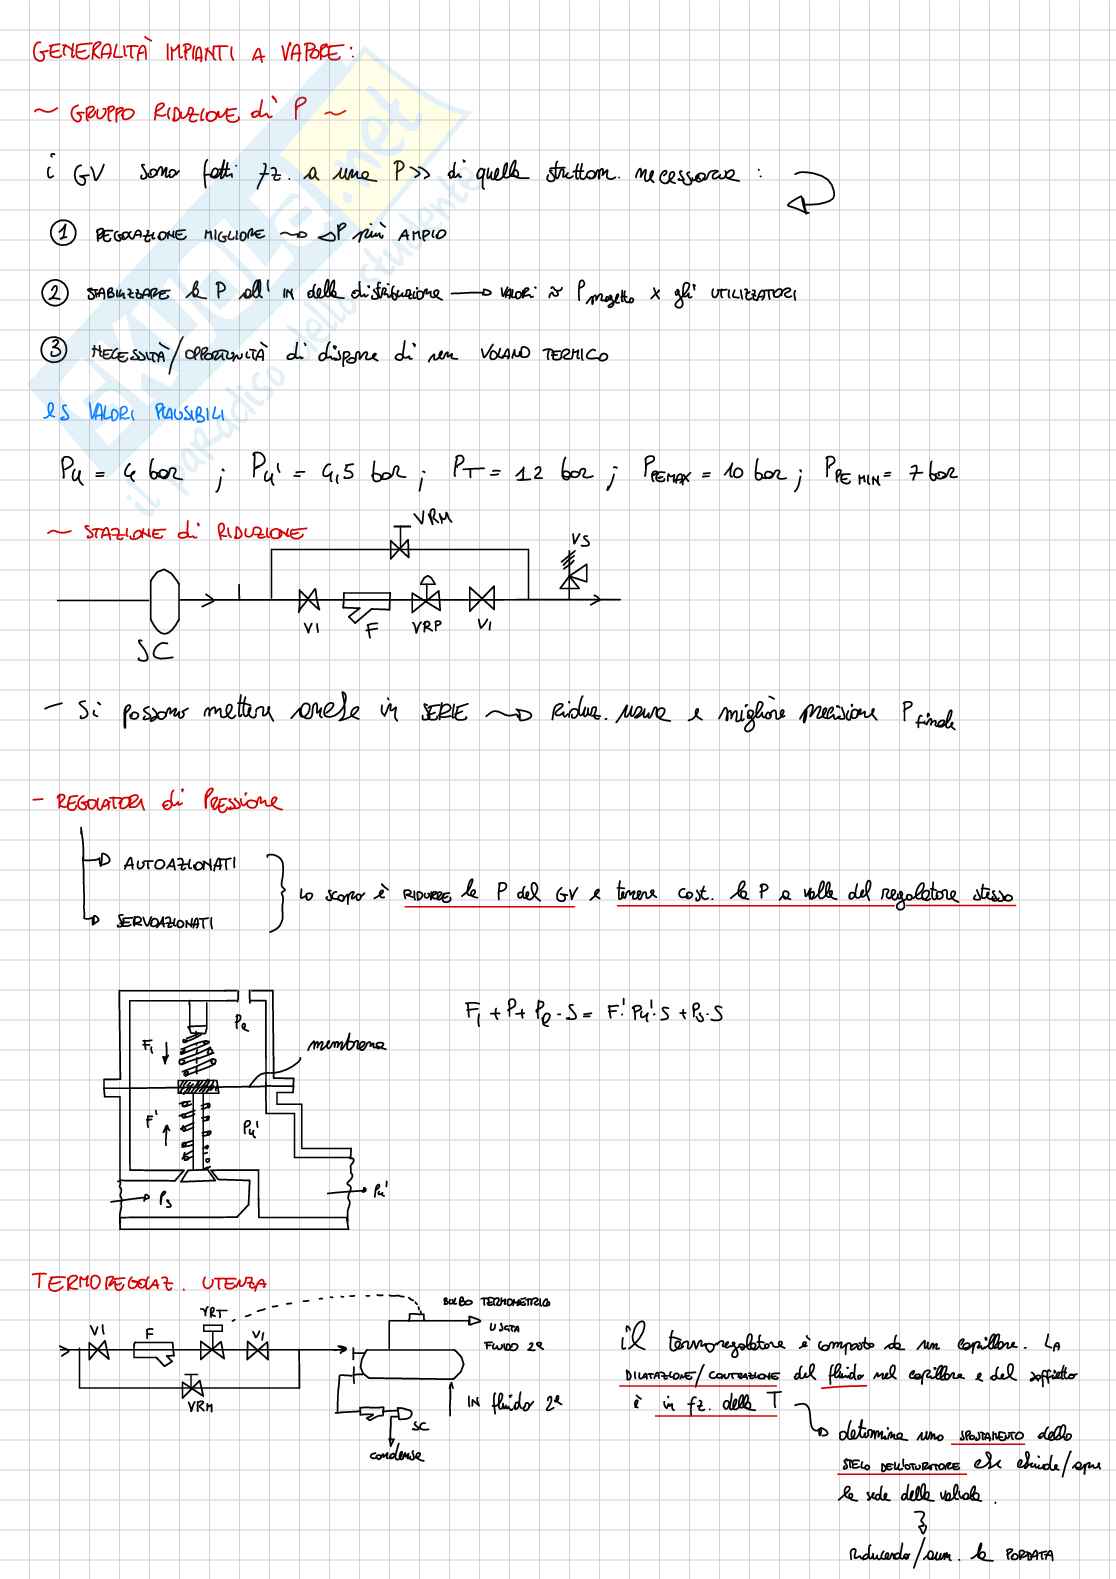 GENERALITÀ IMPIANTI A VAPORE:
~ GRUPPO RIDUZIONE di P ~
i GV sono fatti fz. a una P>> di quella strettam. necessaria :
① REGOLAZIONE MIGLIORE ~> ΔP più AMPIO
② STABILIZZARE la P all' IN della distribuzione → VALORI ≈ P progetto x gli UTILIZZATORI
③ NECESSITÀ/OPPORTUNITÀ di disporre di un VOLANO TERMICO
es VALORI PLAUSIBILI
Pu = 4 bar ; Pu' = 4,5 bar ; PT = 12 bar ; PPE MAX = 10 bar ; PPE MIN = 7 bar
~ STAZIONE di RIDUZIONE
VRM
VS
VI
F
VRP
VI
SC
- Si possono mettere anche in SERIE ~> Riduz. usura e migliore precisione P finale
- REGOLATORI di PRESSIONE
AUTOAZIONATI
SERVOAZIONATI
Lo scopo è RIDURRE la P del GV e tenere cost. la P a valle del regolatore stesso
F1 + P + Pe · S = F' · Pu' · S + Ps · S
Pe
F1
membrana
F'
Pu'
Ps
Pu'
TERMOREGOLAZ. UTENZA
BULBO TERMOMETRICO
VRT
VI
F
VI
USCITA
FLUIDO 2°
VRM
IN fluido 2°
SC
condensa
il termoregolatore è composto da un capillare. LA
DILATAZIONE/CONTRAZIONE del fluido nel capillare e del soffietto
è in fz. della T
determina uno SPOSTAMENTO dello
STELO DELL'OTTURATORE che chiude/apre
la sede della valvola.
Riducendo/aum. la PORTATA
skuola.net
il paradiso dello studente